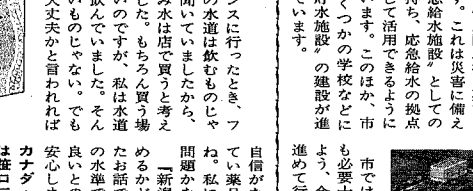 す。これは災害に備え
急給水施設〟としての
持ち、応急給水の拠点
して活用できるように
います。このほか、市
くつかの学校などに
貯水施設〟の建設が進
ています。
ンスに行ったとき、フ
の水道は飲むものじゃ
聞いていましたから、
み水は店で買うと考え
した。もちろん買う場
いのですが、私は水道
飲んでいました。そん
いものじゃない。でも
大丈夫かと言われれば
市では
も必要士
よう、合
進めて行
自信がを
てい薬品
ね。私に
問題かな
「新潟
めるかど
たお話で
の水準で
良いとの
安心しま
カナダ
は笹口一